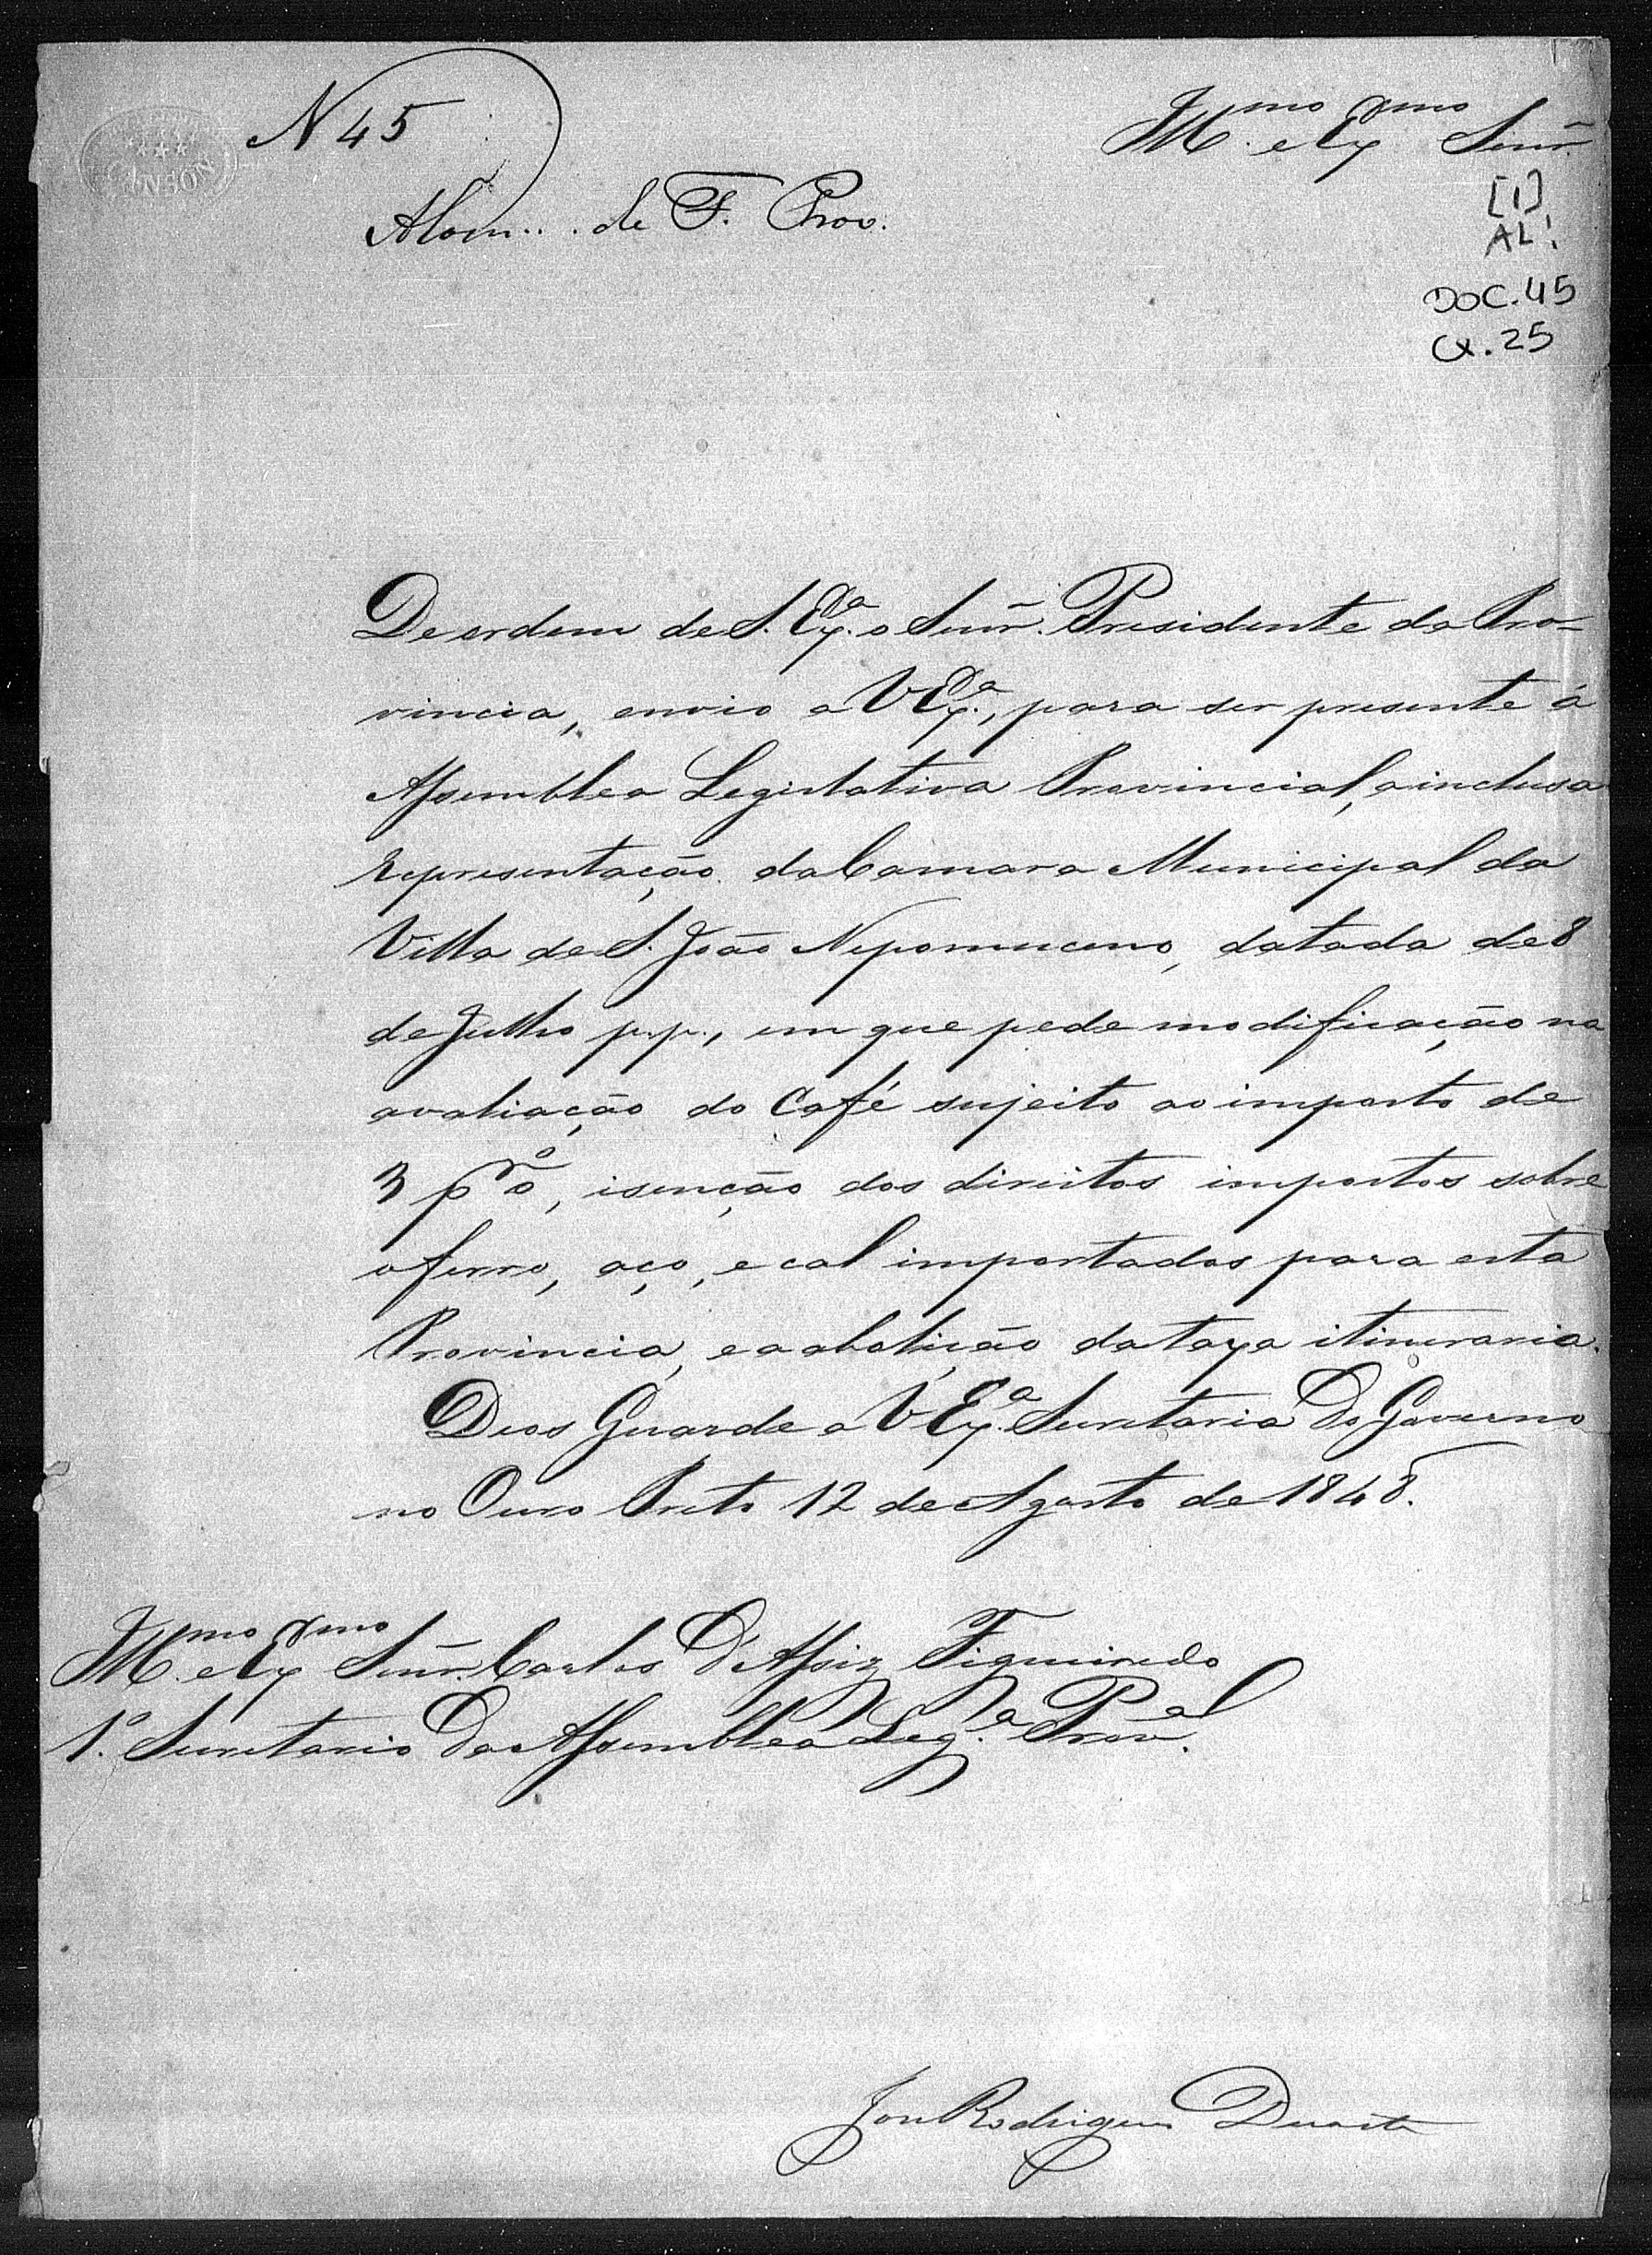 N 45
Illmo. e Exmo Senr.
[1]
AL!
A Com.. de F. Prov.
DOC. 45
CX. 25
De ordem de S. Exª. o Senr. Presidente da Pro=
vincia, envio a V Exª., para ser presente á
Assemblea Legislativa Provincial, a inclusa
representação da Camara Municipal da
Villa de S. João Nepomuceno, datada de 8
de Julho p.p., em que pede modificação na
avaliação do Café sujeito ao imposto de
3 p%, isenção dos direitos impostos sobre
o ferro, aço, e cal importados para esta
Provincia, e a abolição da taxa itineraria.
Deos Guarde a V Exª. Secretaria do Governo
no Ouro Preto 12 de Agosto de 1848.
Illmo. e Exmo Senr. Carlos d'Assiz Figueiredo
1º. Secretario da Assemblea Legª. Proval.
José Rodrigues Duarte